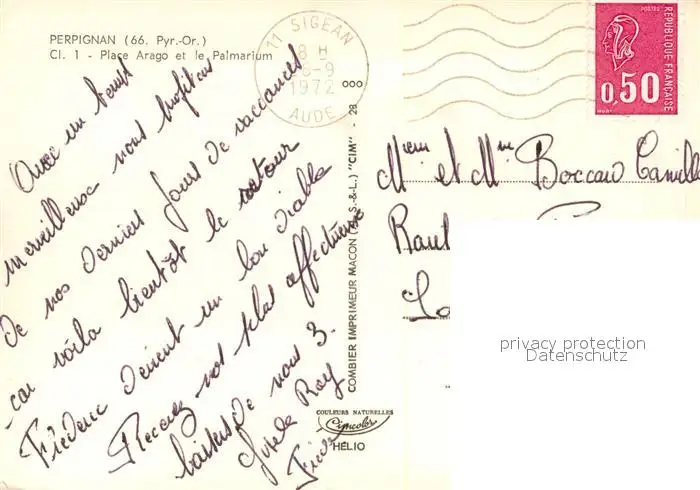 PERPIGNAN (66. Pyr.-Or.)
Cl. 1 - Place Arago et le Palmarium
11 SIGEAN
8 H
-9
1972
AUDE
POSTES
RÉPUBLIQUE FRANÇAISE
0,50
Avec un temps
merveilleux nous profitons
de nos derniers jours de vacances
car voilà bientôt le retour
Frédéric devient un bon diable
Recevez nos plus affectueux
baisers de nous 3.
Gisèle Roy
Fred
COMBIER IMPRIMEUR MACON (S.-&-L.) "CIM" - 28
COULEURS NATURELLES
Cimcolor
HÉLIO
et Mme Boccard Camille
privacy protection
Datenschutz